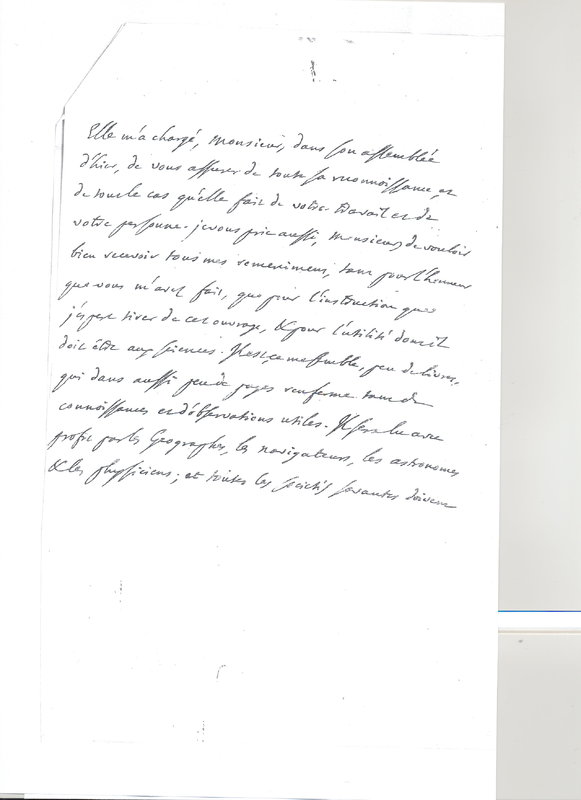 Elle m'a chargé, monsieur, dans son assemblée
d'hier, de vous assurer de toute sa reconnoissance, et
de tout le cas qu'elle fait de votre travail et de
votre personne. je vous prie aussi, monsieur, de vouloir
bien recevoir tous mes remercimens, tant pour l'honneur
que vous m'avez fait, que pour l'instruction que
j'espere tirer de cet ouvrage, & pour l'utilité dont il
doit être aux sciences. Il est, ce me semble, peu de livres,
qui dans aussi peu de pages renferme tant de
connoissances et d'observations utiles. Il sera lu avec
profit par les Geographes, les navigateurs, les astronomes
& les physiciens; et toutes les societés savantes doivent